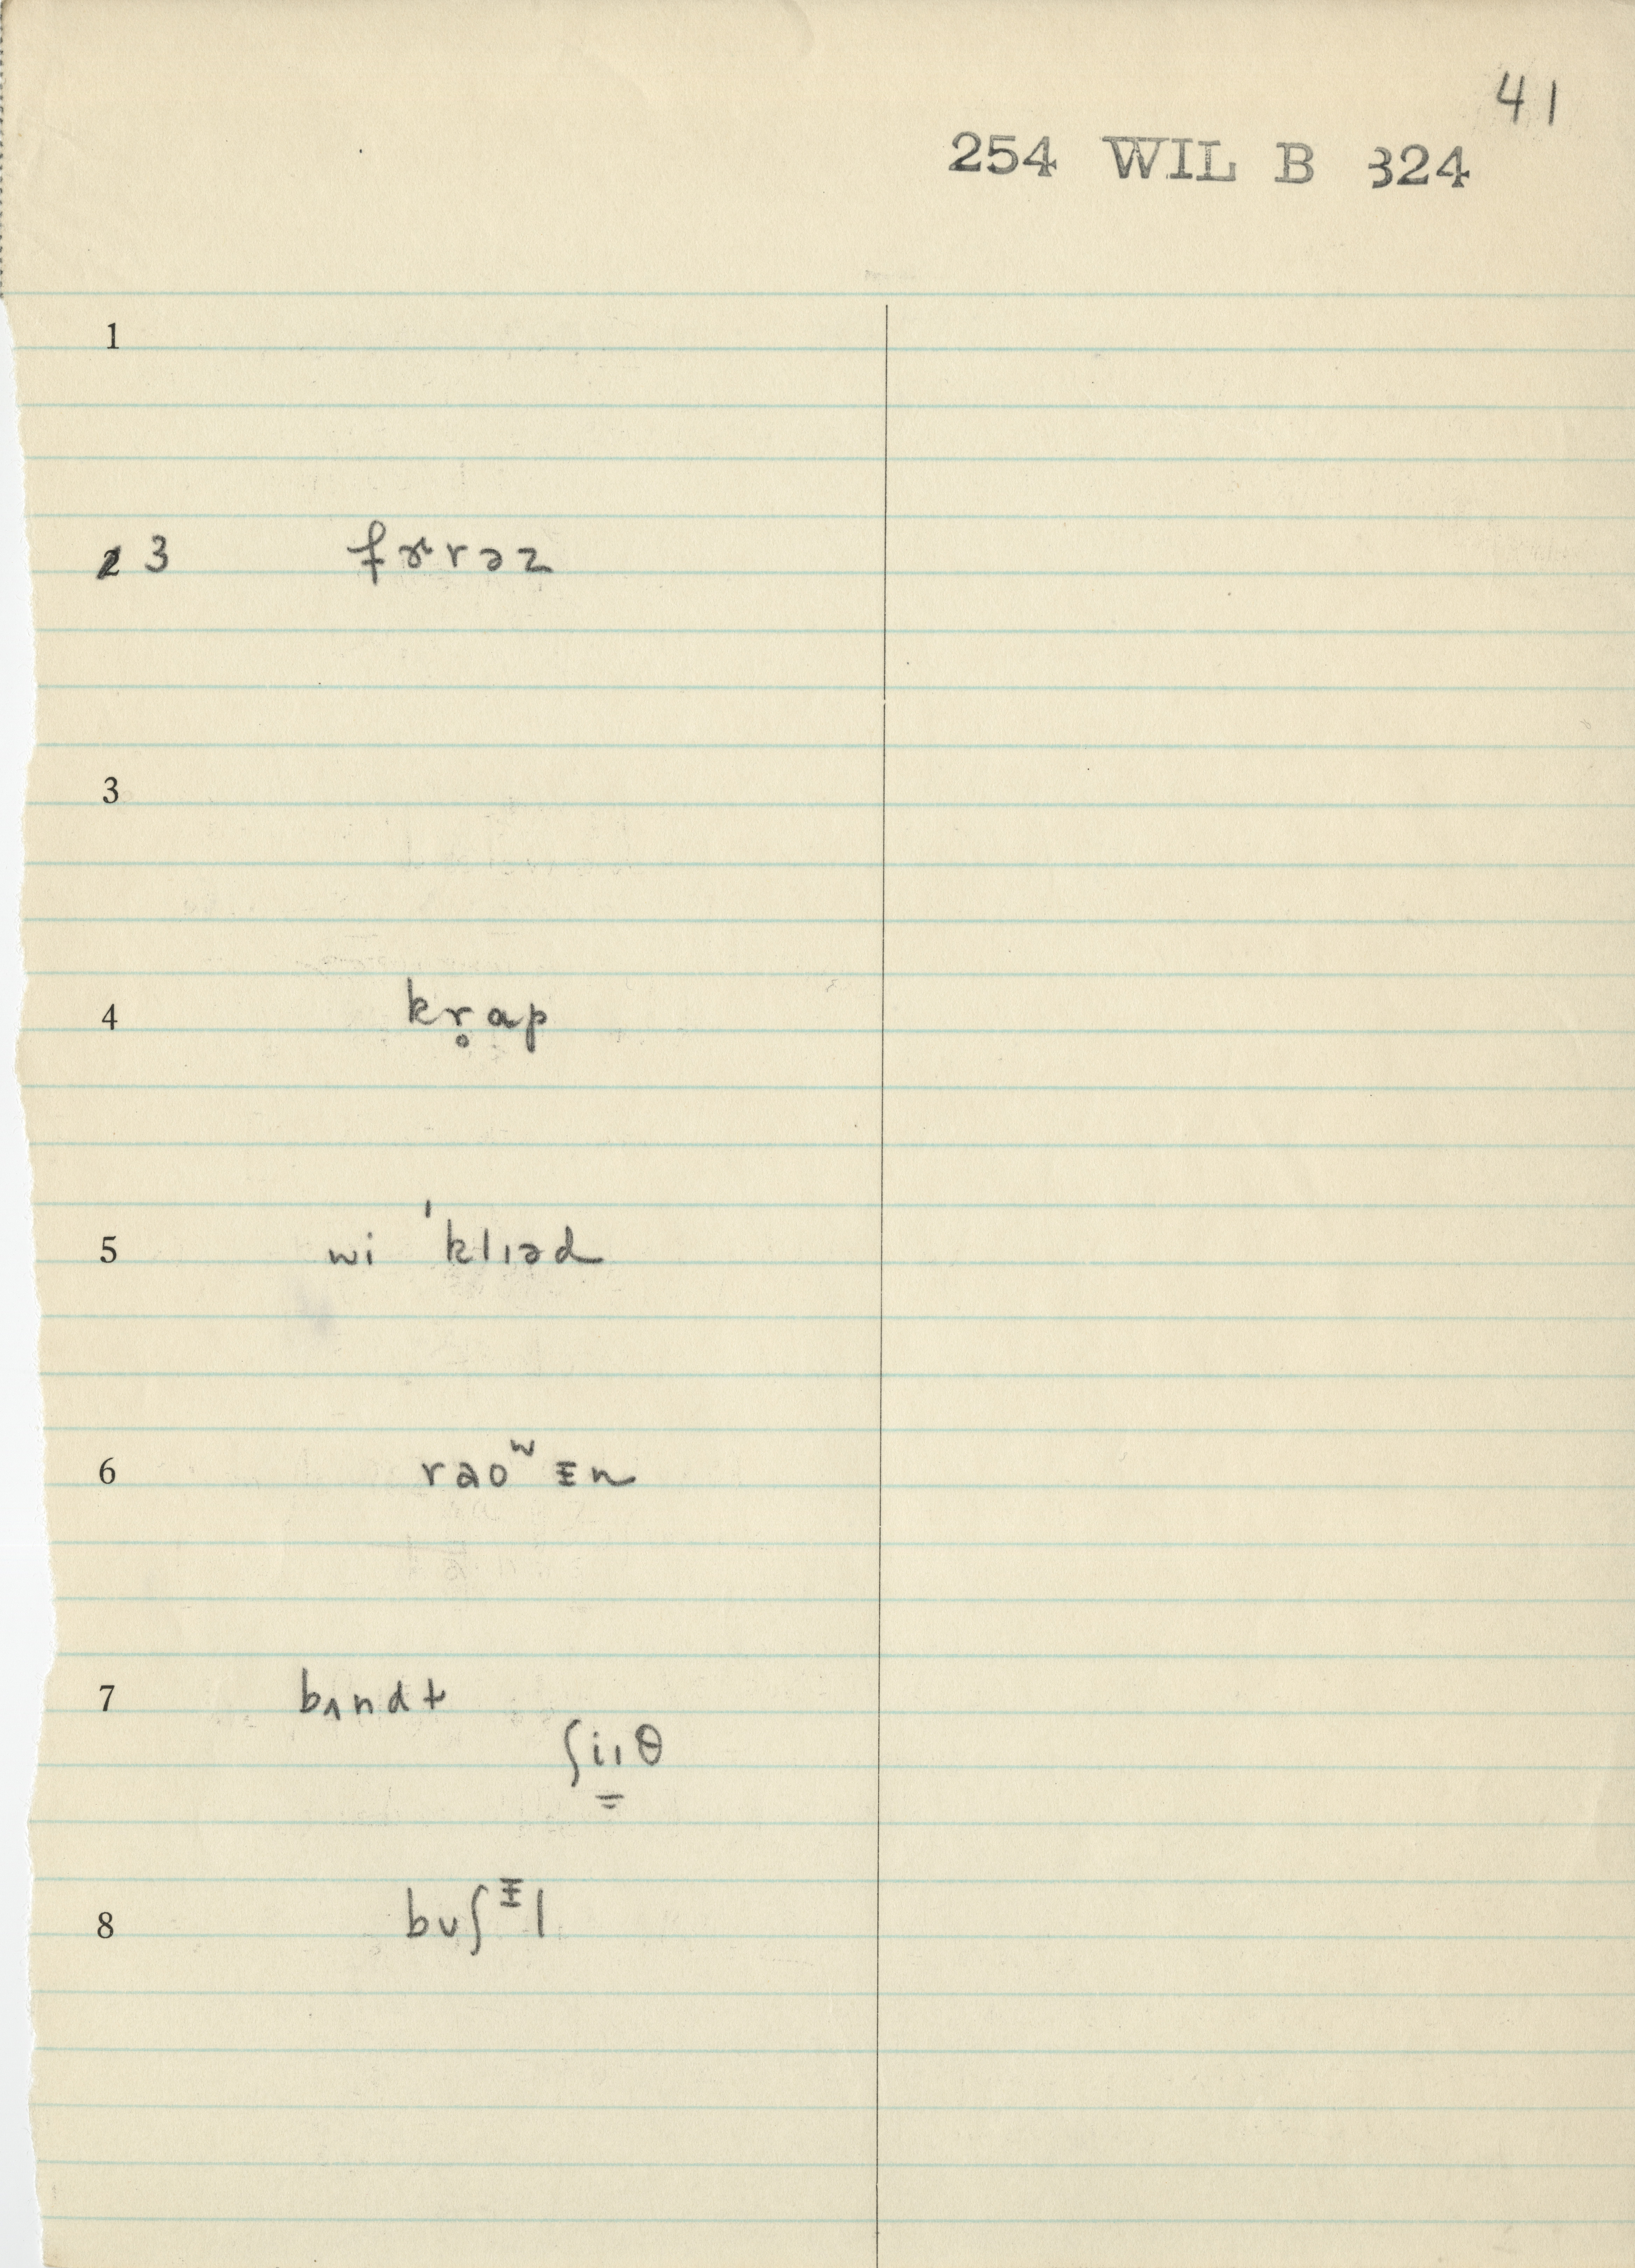 41
254 WIL B 324
1
2 3 fɚrəz
3
4 kr̥ap
5 wi ˈklɪəd
6 raoʷɪn
7 bʌndɫ
ʃiɪθ
8 bʊʃɪl